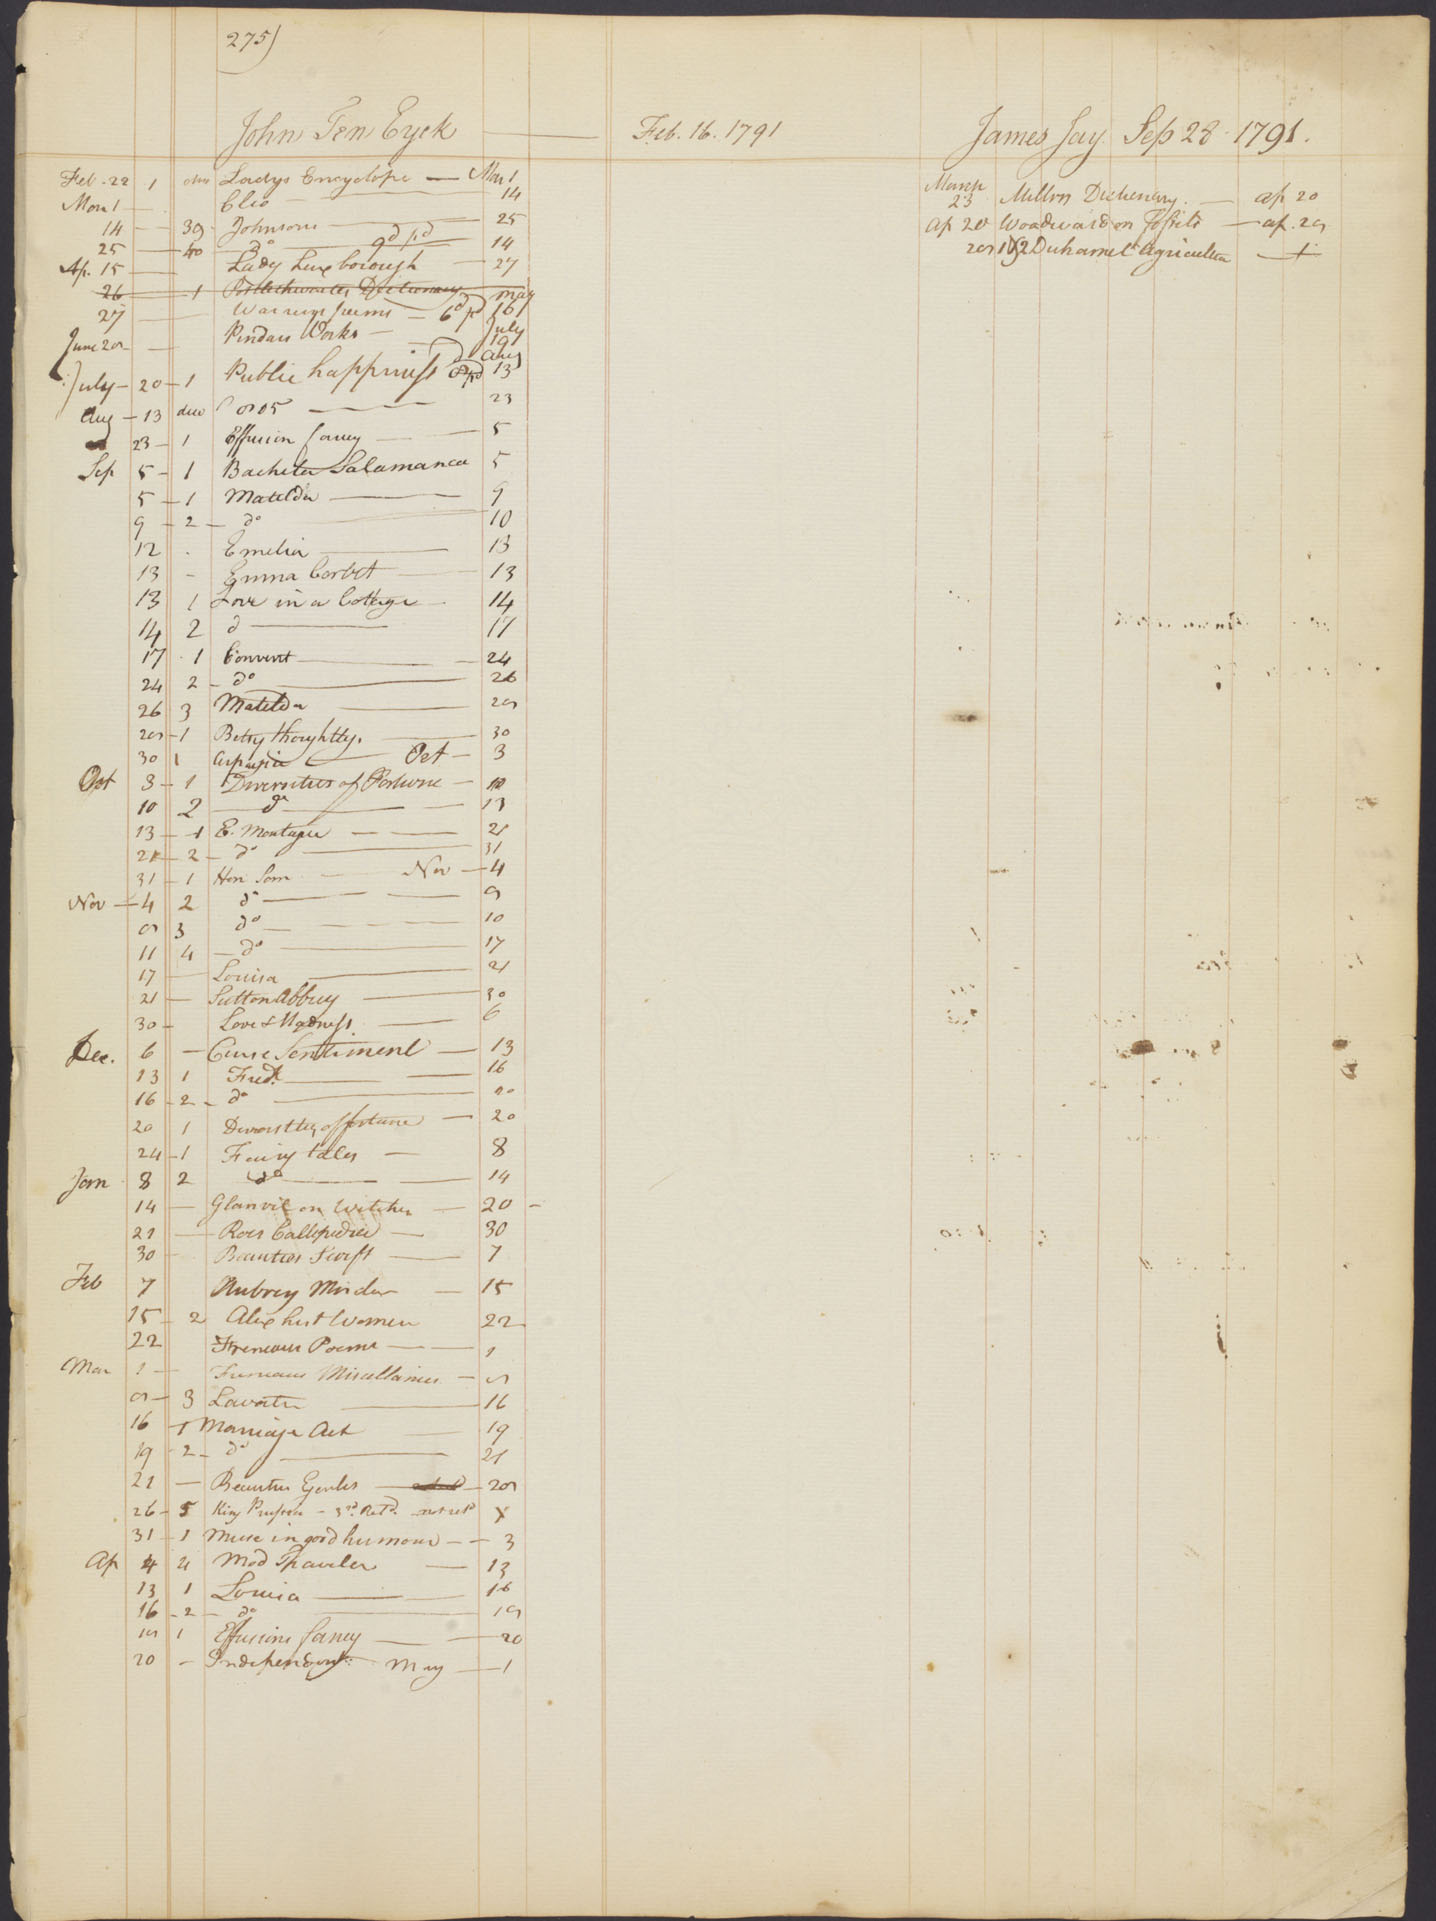 275)
John Ten Eyck — Feb. 16. 1791
Feb. 22 1 Ladys Encyclope — Mar 1
Mar 1 — Clio — 14
14 — 39 Johnsons — 25
25 — 40 do 9d pd 14
Ap. 15 — Lady Luxborough — 27
26 — 1 Postlethwaites Dictionary may
27 — poems — 6d pd 16
June 20 — Pindars Works — July 19
July — 20 — 1 Public happiness pd Aug 13
Aug — 13 23
23 — 1 Effusion fancy — 5
Sep 5 — 1 Bachelor Salamanca 5
5 — 1 Matilda — 9
9 — 2 — do 10
12 . Emelia — 13
13 - Emma Corbet — 13
13 1 Love in a Cottage — 14
14 2 d — 17
17 . 1 Convent — 24
24 2 — do — 26
26 3 Matilda — 29
29 — 1 Betsy thoughtly. — 30
30 1 Aspasia — Oct — 3
Oct 3 — 1 Diversities of Fortune — 10
10 2 — do — 13
13 — 1 E. Montague — 21
21 — 2 — do — 31
31 — 1 Hon Som — Nov — 4
Nov — 4 2 do — 9
9 3 do — 10
11 4 — do — 17
17 — Louisa — 21
21 — Sutton Abbey — 30
30 — Love & Madness — 6
Dec. 6 — Curse Sentiment — 13
13 1 Fredk — 16
16 — 2 — do — 20
20 1 Diversitys of fortune — 20
24 — 1 Fairy tales — 8
Jan 8 2 do — 14
14 — Glanvil on Witches — 20 —
21 — Roes Callipediae — 30
30 — Beauties Swift — 7
Feb 7 Aubrey Miscelar — 15
15 — 2 Alex hist Women 22
22 Freneaus Poems — 1
Mar 1 — Freneaus Miscellanies — 9
9 — 3 Lavater — 16
16 — 1 Marriage Act — 19
19 — 2 — do — 21
21 — Beauties — 29
26 — 5 King Prussia — 3rd Retd. not retd X
31 — 1 Muse in good humour — 3
Ap 4 4 Mod Traveler — 13
13 1 Louisa — 16
16 — 2 — do — 19
19 1 Effusions fancy — 20
20 — Independent May — 1
James Jay Sep 28 1791.
March 23 Millers Dictionary. — ap 20
Ap 20 Woodward on Fossils — ap. 29
29 1&2 Duhamel Agriculture — +